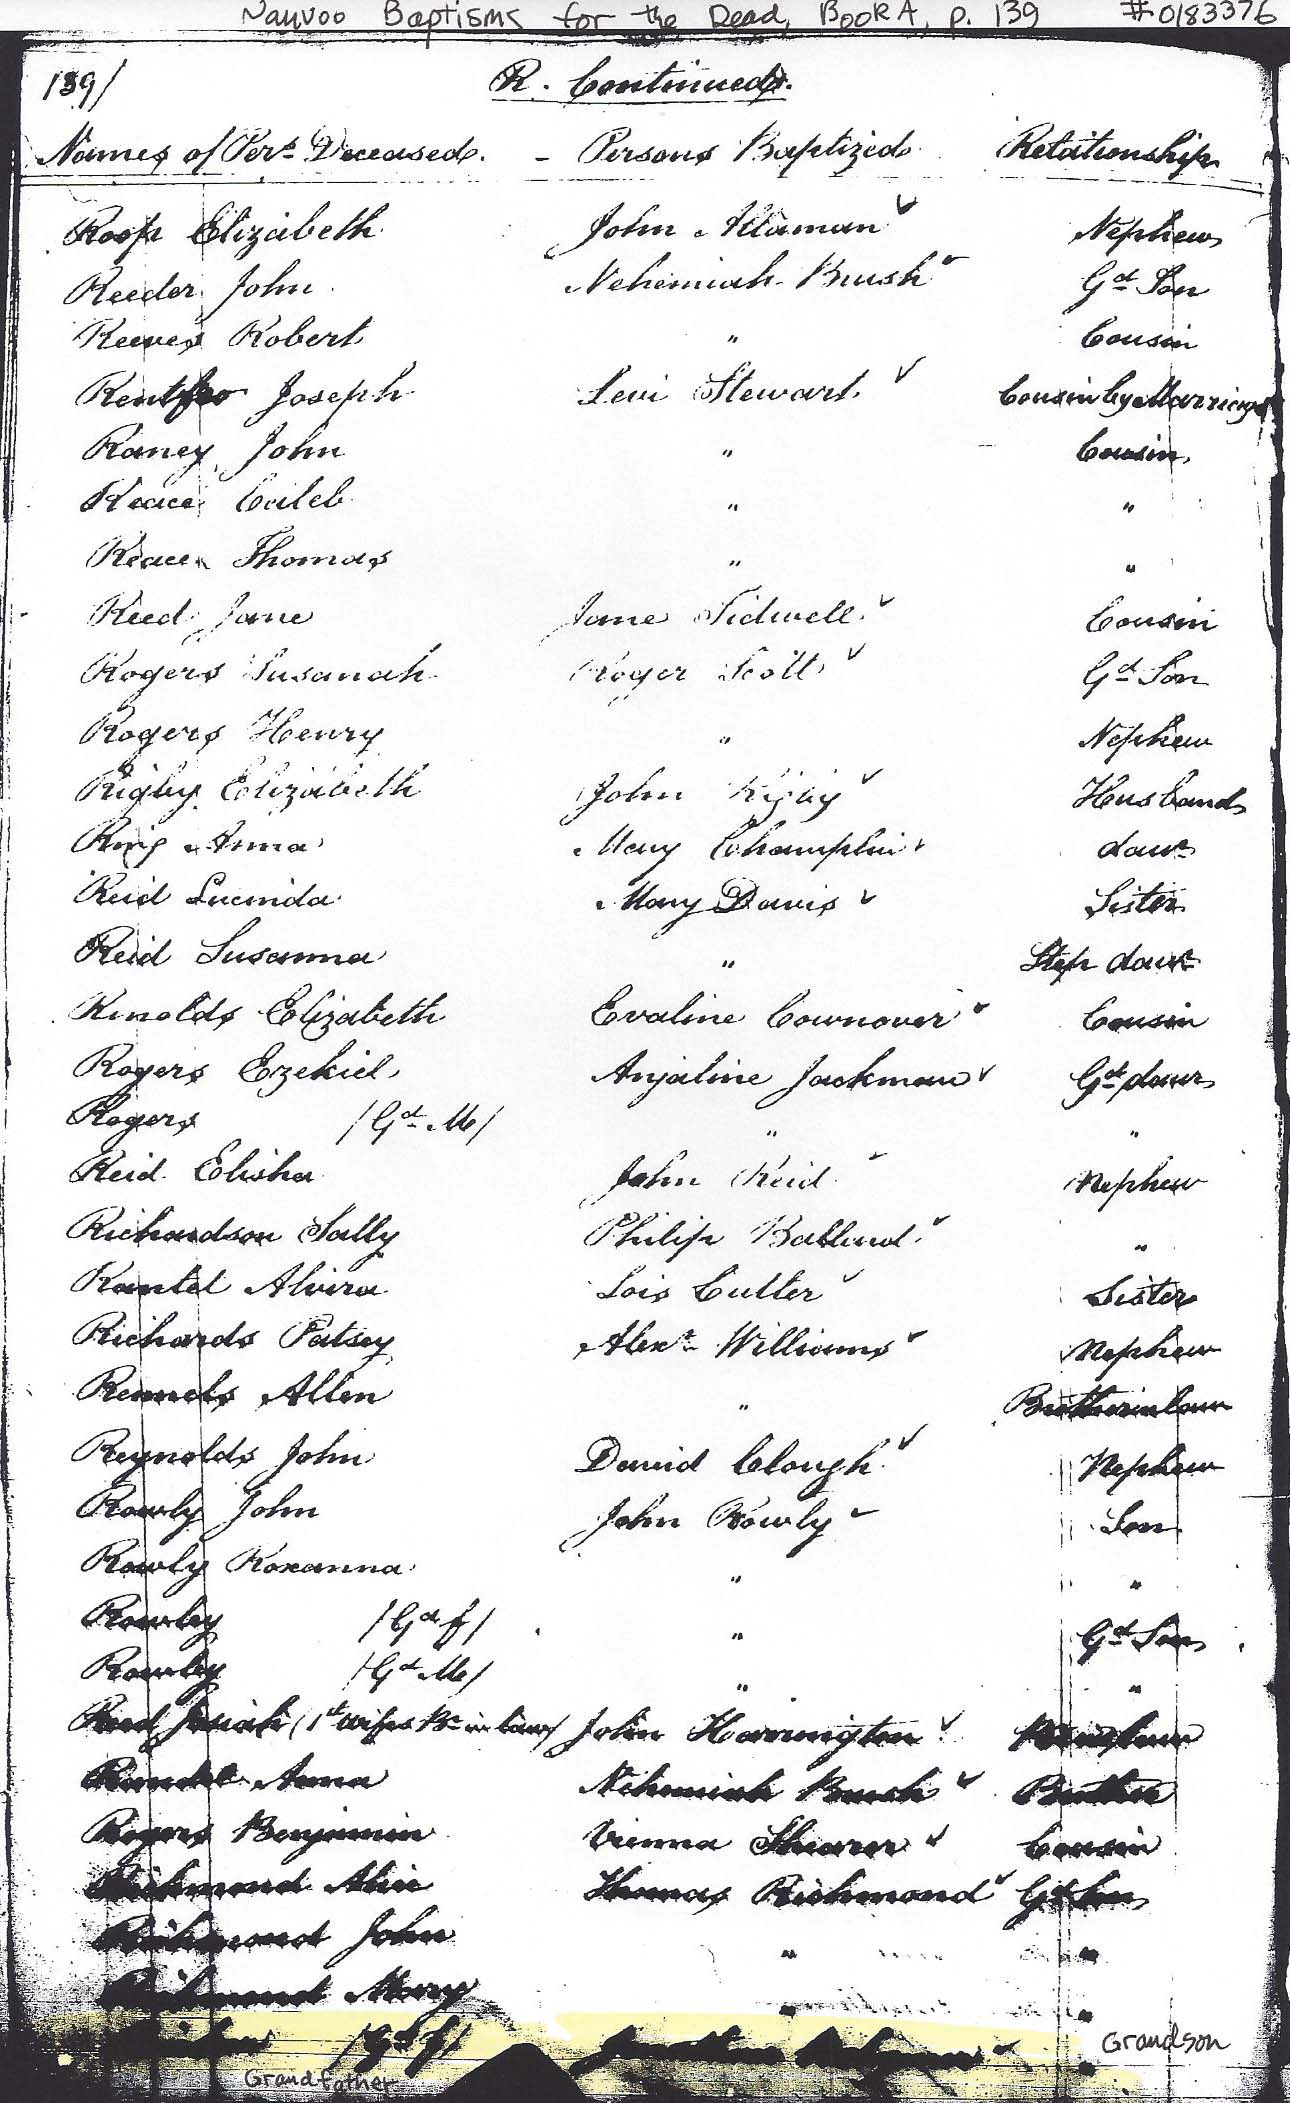 Nauvoo Baptisms for the Dead, Book A, p. 139 #0183376
139/ R. Continued.
Names of Pers. Deceased. - Persons Baptized Relationship
Roop Elizabeth John Alaman Nephew
Reeder John Nehemiah Brush Gd Son
Reeves Robert " Cousin
Rentfro Joseph Levi Stewart Cousin by Marriage
Raney John " Cousin
Reace Caleb " "
Reace Thomas " "
Reed Jane Jane Tidwell Cousin
Rogers Susanah Roger Scott Gd Son
Rogers Henry " Nephew
Rigby Elizabeth John Rigby Husband
Ring Anna Mary Champlin daur
Reid Lucinda Mary Davis Sister
Reid Susanna " Step daur
Rinolds Elizabeth Evaline Cownover Cousin
Rogers Ezekiel Anjaline Jackman Gd daur
Rogers /Gd M/ " "
Reid Elisha John Reid Nephew
Richardson Sally Philip Ballard "
Rantel Alvira Lois Cutler Sister
Richards Patsey Alexr Williams Nephew
Rennels Allen " Brotherinlaw
Reynolds John David Clough Nephew
Rowly John John Rowly Son
Rowly Roxanna " "
Rowley /Gd f/ " Gd Son
Rowley /Gd M/ " "
Reed Josiah (1st wifes Br in law) John Harrington
Randel Anna Nehemiah Brush Brother
Rogers Benjamin Vienna Shearer Cousin
Richmond Thomas Richmond Gd Son
Richmond John " "
Richmond Mary " "
/Gd f/ " Grandson
Grandfather